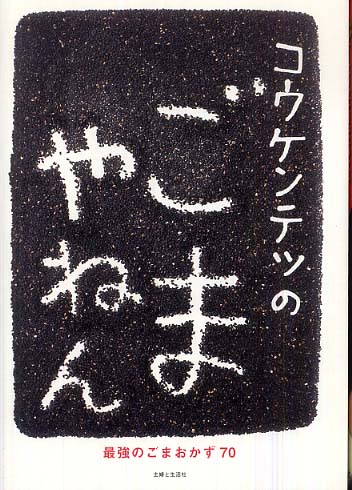 コウケンテツの
ごま
やねん
最強のごまおかず70
主婦と生活社